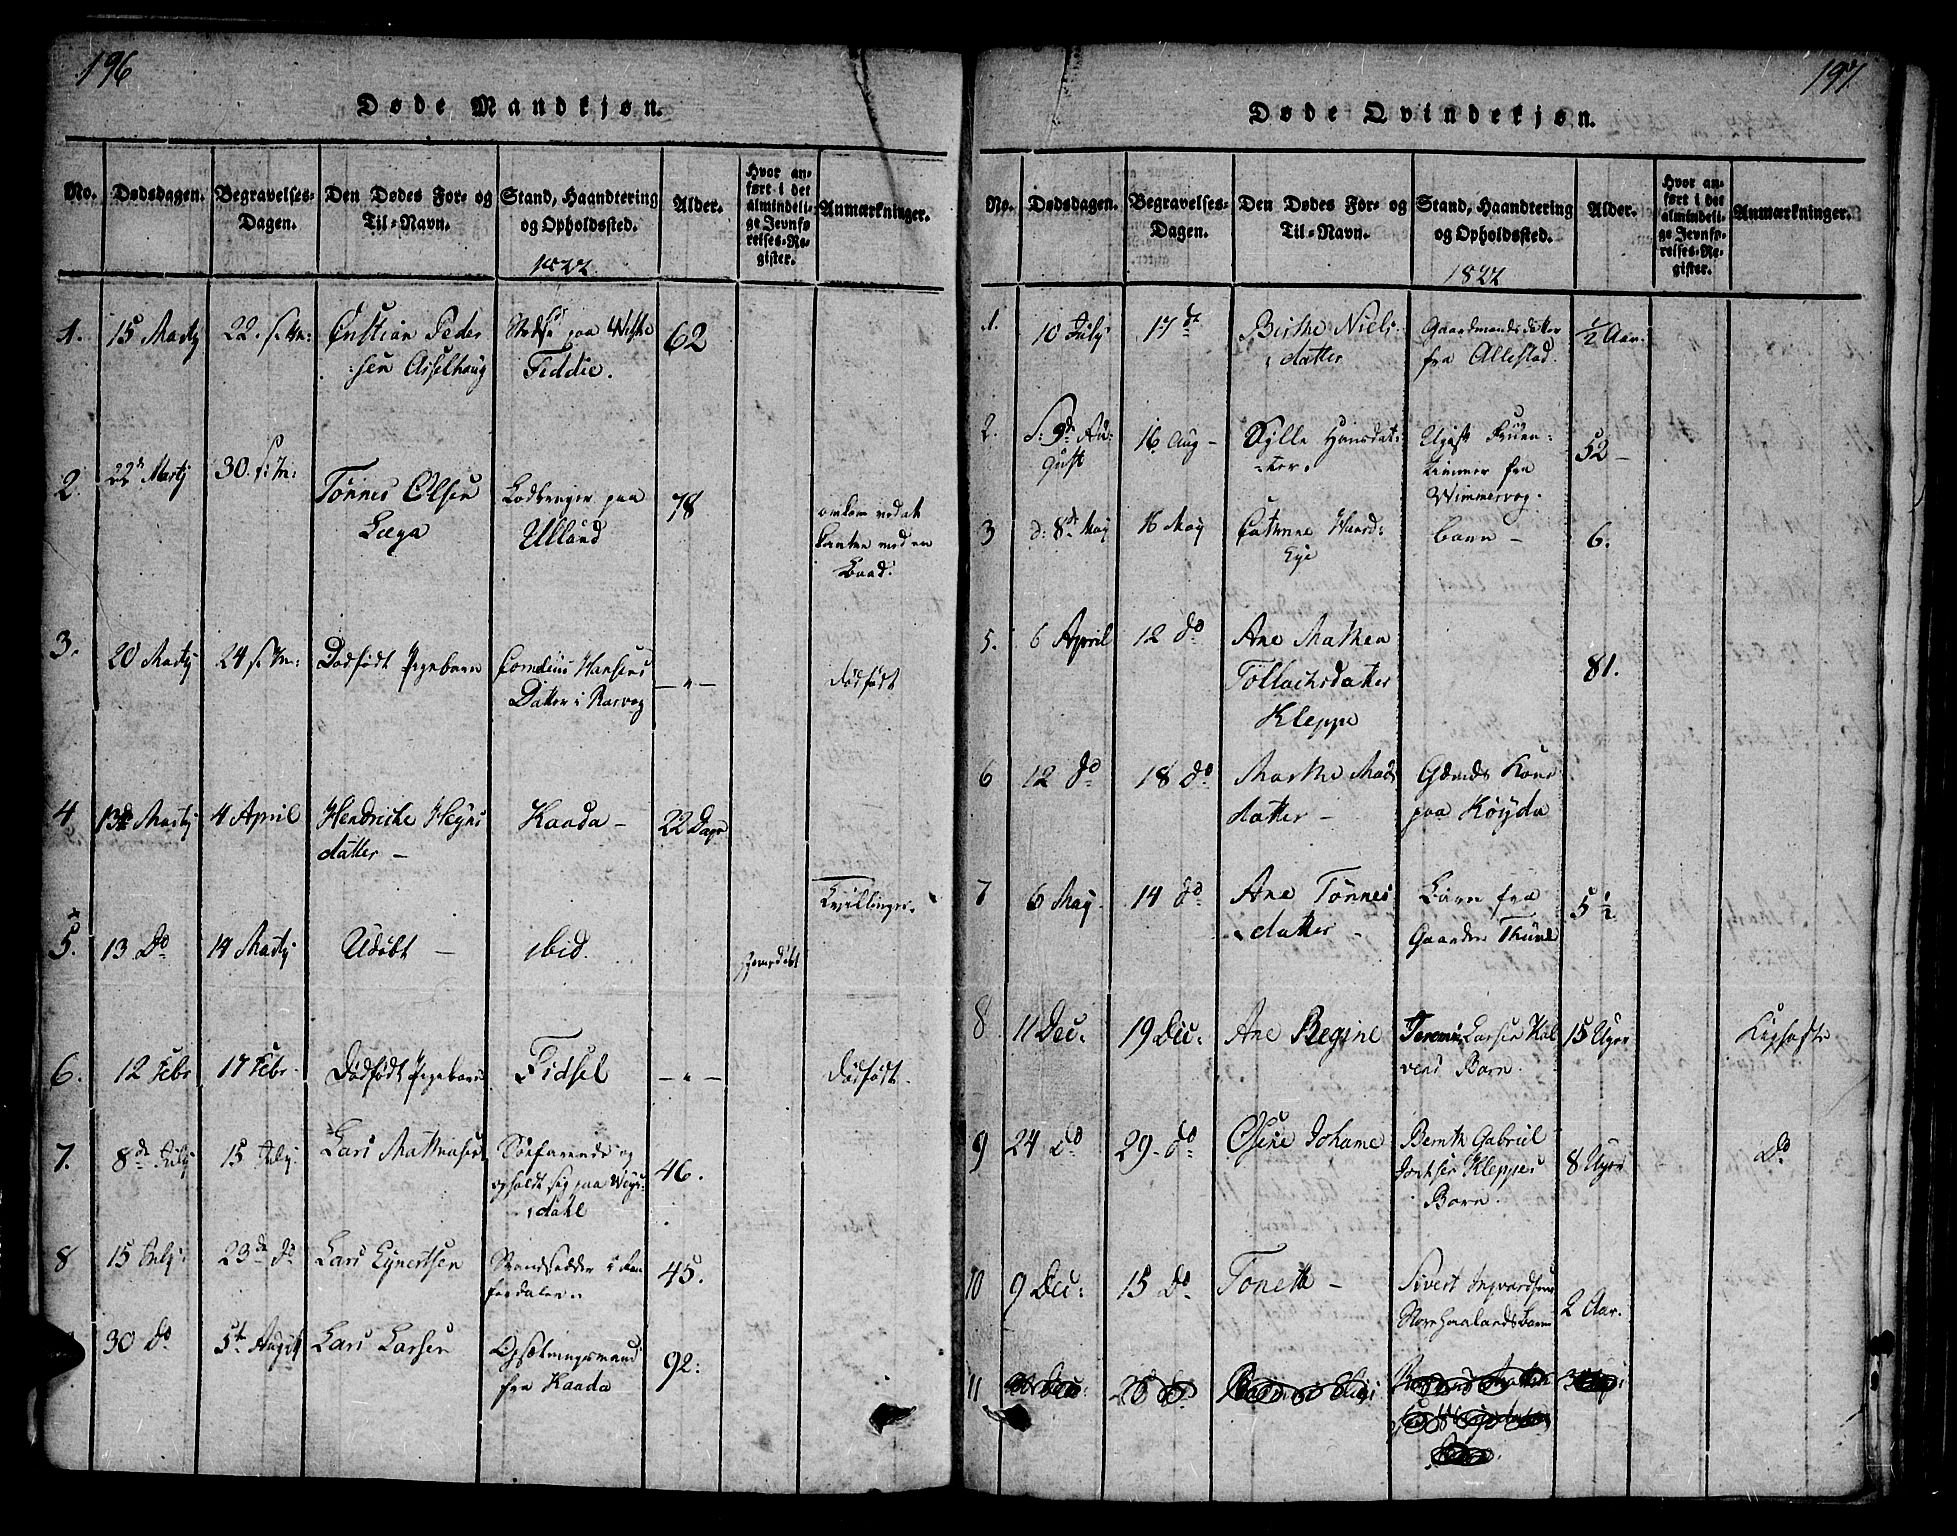 196
Døde Mandkjøn.
No. Dødsdagen. Begravelses-Dagen. Den Dødes For- og Til-Navn. Stand, Haandtering og Opholdssted. Alder. Hvor anført i det almindelige Jevnførelses-Register. Anmærkninger.
1822
1. 15 Martj 22. s. M: Cristian Peder
:sen Asselhaug
paa Westre
Feddie.
62
2. 22de Martj 30. s: M: Tönnes Olsen
Lega
paa
Ulland
78
omkom ved at
kantre med en
Baad.
3. 20 Martj 24 s. M: Dödfödt Pigebarn Cornelius Hansens
Datter i Rasvog
— " —
dödfödt
4. 13de Martj 4 April Hendriche Heyns
datter —
Kaada — 22 Dage
Tvillinger.
5. 13 Do 14 Martj Udöbt — ibid.
hjemedöbt
6. 12 Febr 17 Febr. Dödfödt Pigebarn Fidsel — " — dödfödt.
7. 8de July 15 July. Lars Mathiasen Söefarende og
opholdt sig paa Weys:
dahl
46.
8 15 July. 23de do Lars Eynertsen Strandsidder i
45.
30 do 5te August Lars Larsen
fra Kaada
92.
197
Døde Qvindekjøn.
No. Dødsdagen. Begravelses-Dagen. Den Dødes For- og Til-Navn. Stand, Haandtering og Opholdssted. Alder. Hvor anført i det almindelige Jevnførelses-Register. Anmærkninger.
1822
1. 10 July 17de Birthe Niels
datter
Gaardmands datter
fra Allestad.
1/2 Aar.
2. d: 9de Au:
gust
16 Aug — Sylle Hansdat:
ter.
Ugift Fruen:
timmer fra
Wimmervog.
52 —
3 d: 8de May 16 May Catrine Haard:
Eye
barn — 6.
5. 6 April 12 do Ane Mathea
Tollachsdatter
Kleppe
81.
6 12 do 18 do Marthe Mads
datter —
Gaards Kone
paa Röyda
7 6 May. 14 do Ane Tönnes
datter —
Barn fra
Gaarden Thune
5 1/2
8 11 Dec. 19 Dec: Ane Regine Larsen Kal
vens Barn.
15 Uger
Kighoste
9 24 do 29. do Osine Johanne Bernth Gabriel
Kleppes
Barn.
8 Uger
Do
10 9 Dec: 15 Do Toneth — Sivert Ingvardsens
Norehaalands barn
2 Aar.
11